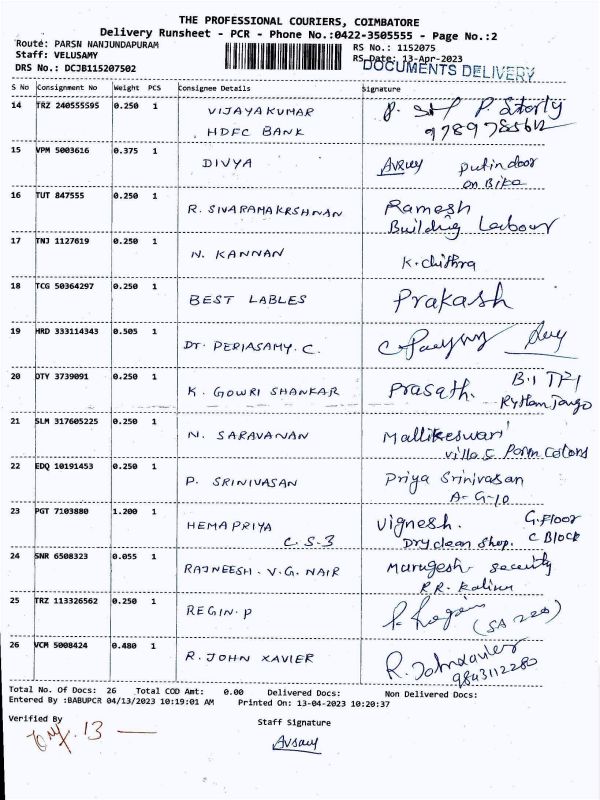 THE PROFESSIONAL COURIERS, COIMBATORE
Delivery Runsheet - PCR - Phone No.:0422-3505555 - Page No.:2
Route: PARSN NANJUNDAPURAM
Staff: VELUSAMY
DRS No.: DCJB115207502
RS No.: 1152075
RS Date: 13-Apr-2023
DOCUMENTS DELIVERY
S No Consignment No Weight PCS Consignee Details Signature
14 TRZ 240555595 0.250 1 VIJAYAKUMAR
HDFC BANK
15 VPM 5003616 0.375 1 DIVYA put in door
on Bike
16 TUT 847555 0.250 1 R. SIVARAMAKRSHNAN Ramesh
Building Labour
17 TNJ 1127619 0.250 1 N. KANNAN K. chithra
18 TCG 50364297 0.250 1 BEST LABLES Prakash
19 HRD 333114343 0.505 1 DT. PERIASAMY. C.
20 OTY 3739091 0.250 1 K. GOWRI SHANKAR Prasath.
21 SLM 317605225 0.250 1 N. SARAVANAN Mallikeswari
22 EDQ 10191453 0.250 1 P. SRINIVASAN Priya Srinivasan
A-G-10
23 PGT 7103880 1.200 1 HEMAPRIYA Vignesh. G.Floor
C.S-3 Dryclean Shop. C Block
24 SNR 6508323 0.055 1 RAJNEESH. V.G. NAIR Murugesh security
25 TRZ 113326562 0.250 1 REGIN. P
26 VCM 5008424 0.480 1 R. JOHN XAVIER R. Johnxavier
9843112280
Total No. Of Docs: 26 Total COD Amt: 0.00 Delivered Docs: Non Delivered Docs:
Entered By :BABUPCR 04/13/2023 10:19:01 AM Printed On: 13-04-2023 10:20:37
Verified By
Staff Signature